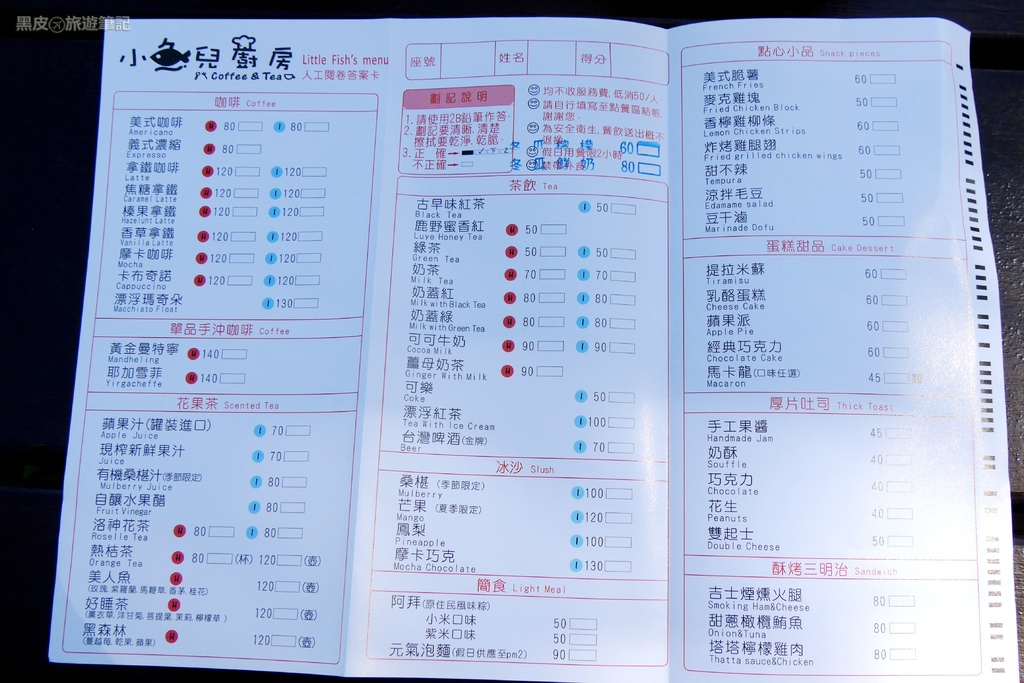 黑皮旅遊筆記
小魚兒廚房
Coffee & Tea
Little Fish's menu
人工閱卷答案卡
咖啡 Coffee
美式咖啡 H 80 I 80
Americano
義式濃縮 H 80
Expresso
拿鐵咖啡 H 120 I 120
Latte
焦糖拿鐵 H 120 I 120
Caramel Latte
榛果拿鐵 H 120 I 120
Hazelunt Latte
香草拿鐵 H 120 I 120
Vanilla Latte
摩卡咖啡 H 120 I 120
Mocha
卡布奇諾 H 120 I 120
Cappuccino
漂浮瑪奇朵 I 130
Macchiato Float
單品手沖咖啡 Coffee
黃金曼特寧 H 140
Mandheling
耶加雪菲 H 140
Yirgacheffe
花果茶 Scented Tea
蘋果汁(罐裝進口) I 70
Apple Juice
現榨新鮮果汁 I 70
Juice
有機桑椹汁(季節限定) I 80
Mulberry Juice
自釀水果醋 I 80
Fruit Vinegar
洛神花茶 H 80 I 80
Roselle Tea
熱桔茶 H 80 (杯) 120 (壺)
Orange Tea
美人魚 H 120 (壺)
(玫瑰.紫羅蘭.馬鞭草.香茅.桂花)
好睡茶 H 120 (壺)
(薰衣草.洋甘菊.菩提葉.茉莉.檸檬草)
黑森林 H 120 (壺)
(蔓越莓.乾果.蘋果)
座號 姓名 得分
劃記說明
1. 請使用2B鉛筆作答.
2. 劃記要清晰.清楚
擦拭要乾淨.乾脆.
3. 正 確→
不正確→
均不收服務費,低消50/人.
請自行填寫至點餐區結帳,
謝謝您.
為安全衛生,餐飲送出概不
退換.
假日用餐限2小時
禁帶外食
冬瓜檸檬 60
冬瓜鮮奶 80
茶飲 Tea
古早味紅茶 I 50
Black Tea
鹿野蜜香紅 H 50
Luye Honey Tea
綠茶 H 50 I 50
Green Tea
奶茶 H 70 I 70
Milk Tea
奶蓋紅 H 80 I 80
Milk with Black Tea
奶蓋綠 H 80 I 80
Milk with Green Tea
可可牛奶 H 90 I 90
Cocoa Milk
薑母奶茶 H 90
Ginger With Milk
可樂 I 50
Coke
漂浮紅茶 I 100
Tea With Ice Cream
台灣啤酒(金牌) I 70
Beer
冰沙 Slush
桑椹 (季節限定) I 100
Mulberry
芒果 (夏季限定) I 120
Mango
鳳梨 I 100
Pineapple
摩卡巧克 I 130
Mocha Chocolate
簡食 Light Meal
阿拜(原住民風味粽)
小米口味 50
紫米口味 50
元氣泡麵(假日供應至pm2) 90
點心小品 Snack pieces
美式脆薯 60
French Fries
麥克雞塊 60
Fried Chicken Block
香檸雞柳條 60
Lemon Chicken Strips
炸烤雞腿翅 60
Fried grilled chicken wings
甜不辣 50
Tempura
涼拌毛豆 50
Edamame salad
豆干滷 50
Marinade Dofu
蛋糕甜品 Cake Dessert
提拉米蘇 60
Tiramisu
乳酪蛋糕 60
Cheese Cake
蘋果派 60
Apple Pie
經典巧克力 60
Chocolate Cake
馬卡龍(口味任選) 45
Macaron
厚片吐司 Thick Toast
手工果醬 45
Handmade Jam
奶酥 40
Souffle
巧克力 40
Chocolate
花生 40
Peanuts
雙起士 50
Double Cheese
酥烤三明治 Sandwich
吉士煙燻火腿 80
Smoking Ham&Cheese
甜蔥橄欖鮪魚 80
Onion&Tuna
塔塔檸檬雞肉 80
Thatta sauce&Chicken